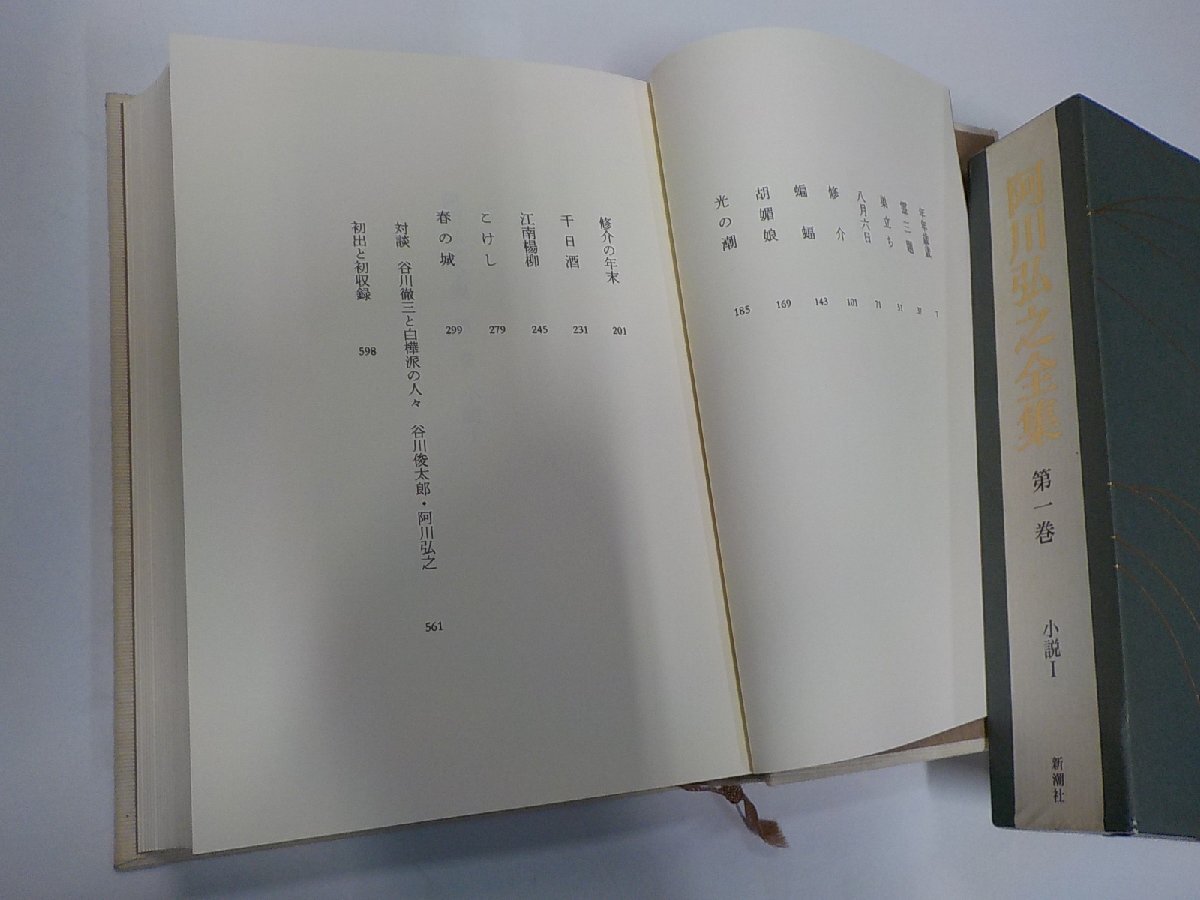 年年歳歳 7
霊三題 37
巣立ち 51
八月六日 71
修介 107
蝙蝠 143
胡媚娘 169
光の潮 185
修介の年末 201
千日酒 231
江南楊柳 245
こけし 279
春の城 299
対談 谷川徹三と白樺派の人々 谷川俊太郎・阿川弘之 561
初出と初収録 598
阿川弘之全集
第一巻
小説Ⅰ
新潮社